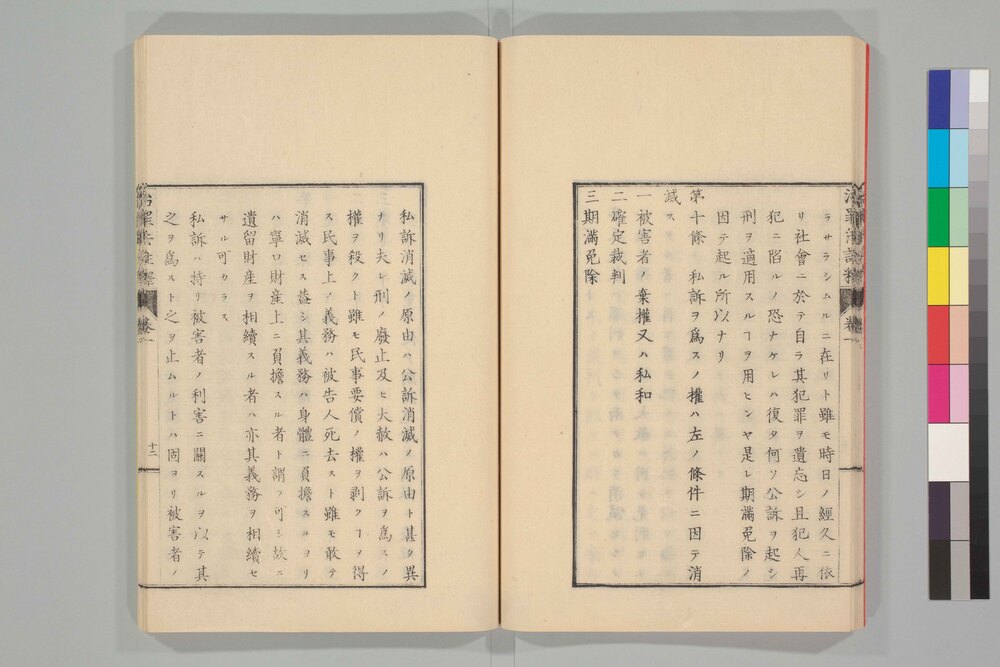 ラサラシムルニ在リト雖モ時日ノ經久ニ依
リ社會ニ於テ自ラ其犯罪ヲ遺忘シ且犯人再
犯ニ陷ルノ恐ナケレハ復タ何ソ公訴ヲ起シ
刑ヲ適用スルヿヲ用ヒンヤ是レ期滿免除ノ
因テ起ル所以ナリ
第十條 私訴ヲ爲スノ權ハ左ノ條件ニ因テ消
滅ス
一 被害者ノ棄權又ハ私和
二 確定裁判
三 期滿免除
私訴消滅ノ原由ハ公訴消滅ノ原由ト甚タ異
ナリ夫レ刑ノ廢止及ヒ大赦ハ公訴ヲ爲スノ
權ヲ殺クト雖モ民事要償ノ權ヲ剥クヿヲ得
ス民事上ノ義務ハ被告人死去スト雖モ敢テ
消滅セス蓋シ其義務ハ身體ニ負擔スルヨリ
ハ寧ロ財産上ニ負擔スル者ト謂フ可シ故ニ
遺留財産ヲ相續スル者ハ亦其義務ヲ相續セ
サル可カラス
私訴ハ特リ被害者ノ利害ニ關スルヲ以テ其
之ヲ爲スト之ヲ止ムルトハ固ヨリ被害者ノ
治罪法註釋 卷一
十二